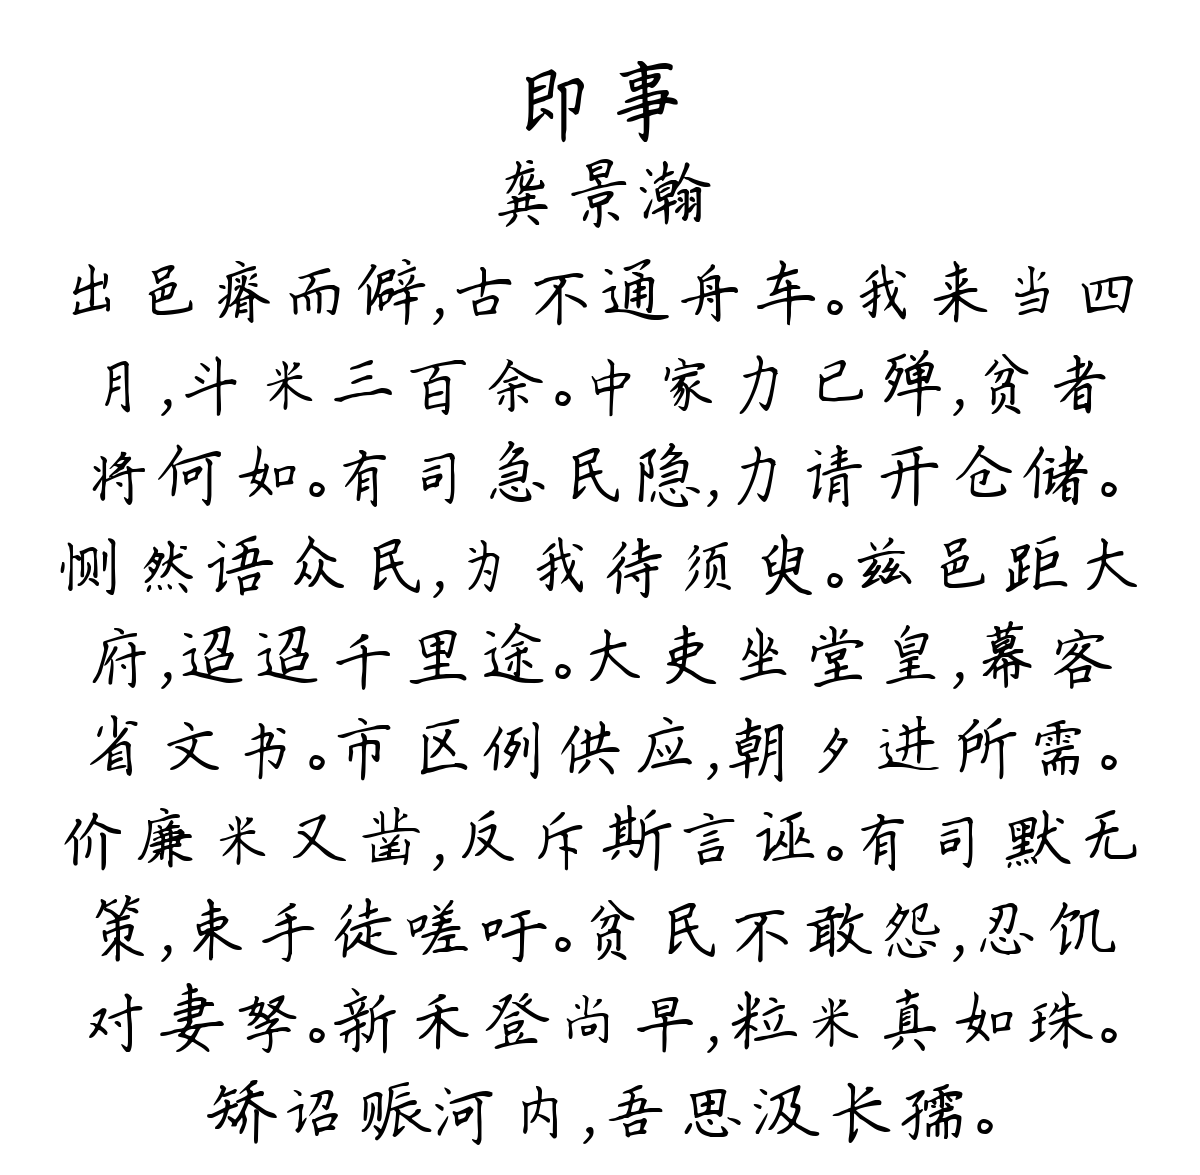 即事
龚景瀚
出邑瘠而僻,古不通舟车。我来当四
月,斗米三百余。中家力已殚,贫者
将何如。有司急民隐,力请开仓储。
恻然语众民,为我待须臾。兹邑距大
府,迢迢千里途。大吏坐堂皇,幕客
省文书。市区例供应,朝夕进所需。
价廉米又凿,反斥斯言诬。有司默无
策,束手徒嗟吁。贫民不敢怨,忍饥
对妻孥。新禾登尚早,粒米真如珠。
矫诏赈河内,吾思汲长孺。